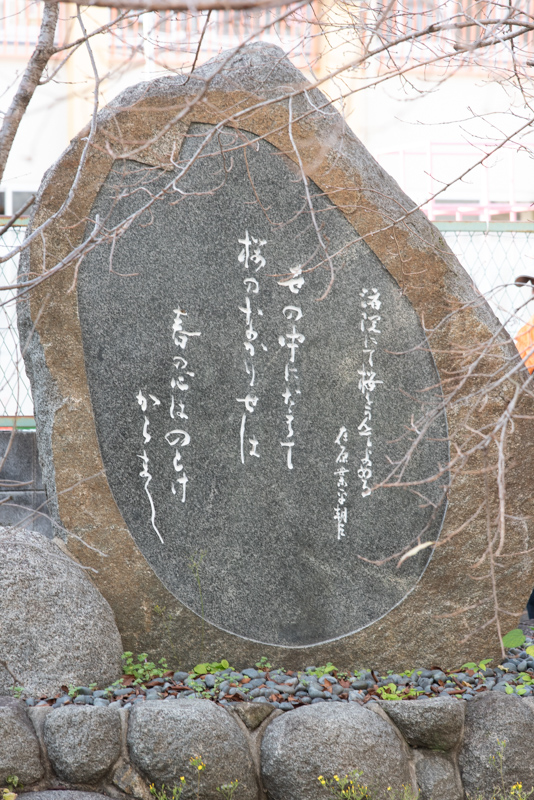 渚院にて桜を見てよめる
在原業平朝臣
世の中にたえて
桜のなかりせは
春の心はのとけ
からまし